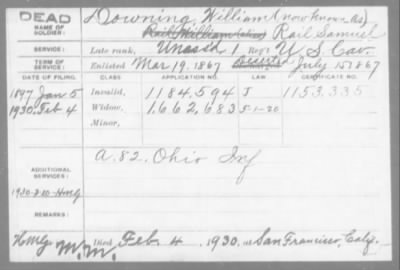 DEAD
NAME OF SOLDIER:
Downing, William (now known as)
Rail Samuel
SERVICE:
Late rank, Unassd 1 Reg't U S Cav.
TERM OF SERVICE:
Enlisted Mar 19, 1867 Deserted July 15, 1867
DATE OF FILING. CLASS. APPLICATION NO. LAW. CERTIFICATE NO.
1897 Jan 5 Invalid, 1184,594 J 1153,335
1930. Feb 4 Widow, 1,662,683 5-1-20
Minor,
A. 82, Ohio Inf
ADDITIONAL SERVICES:
REMARKS:
Died Feb 4, 1930, at San Francisco, Calif.